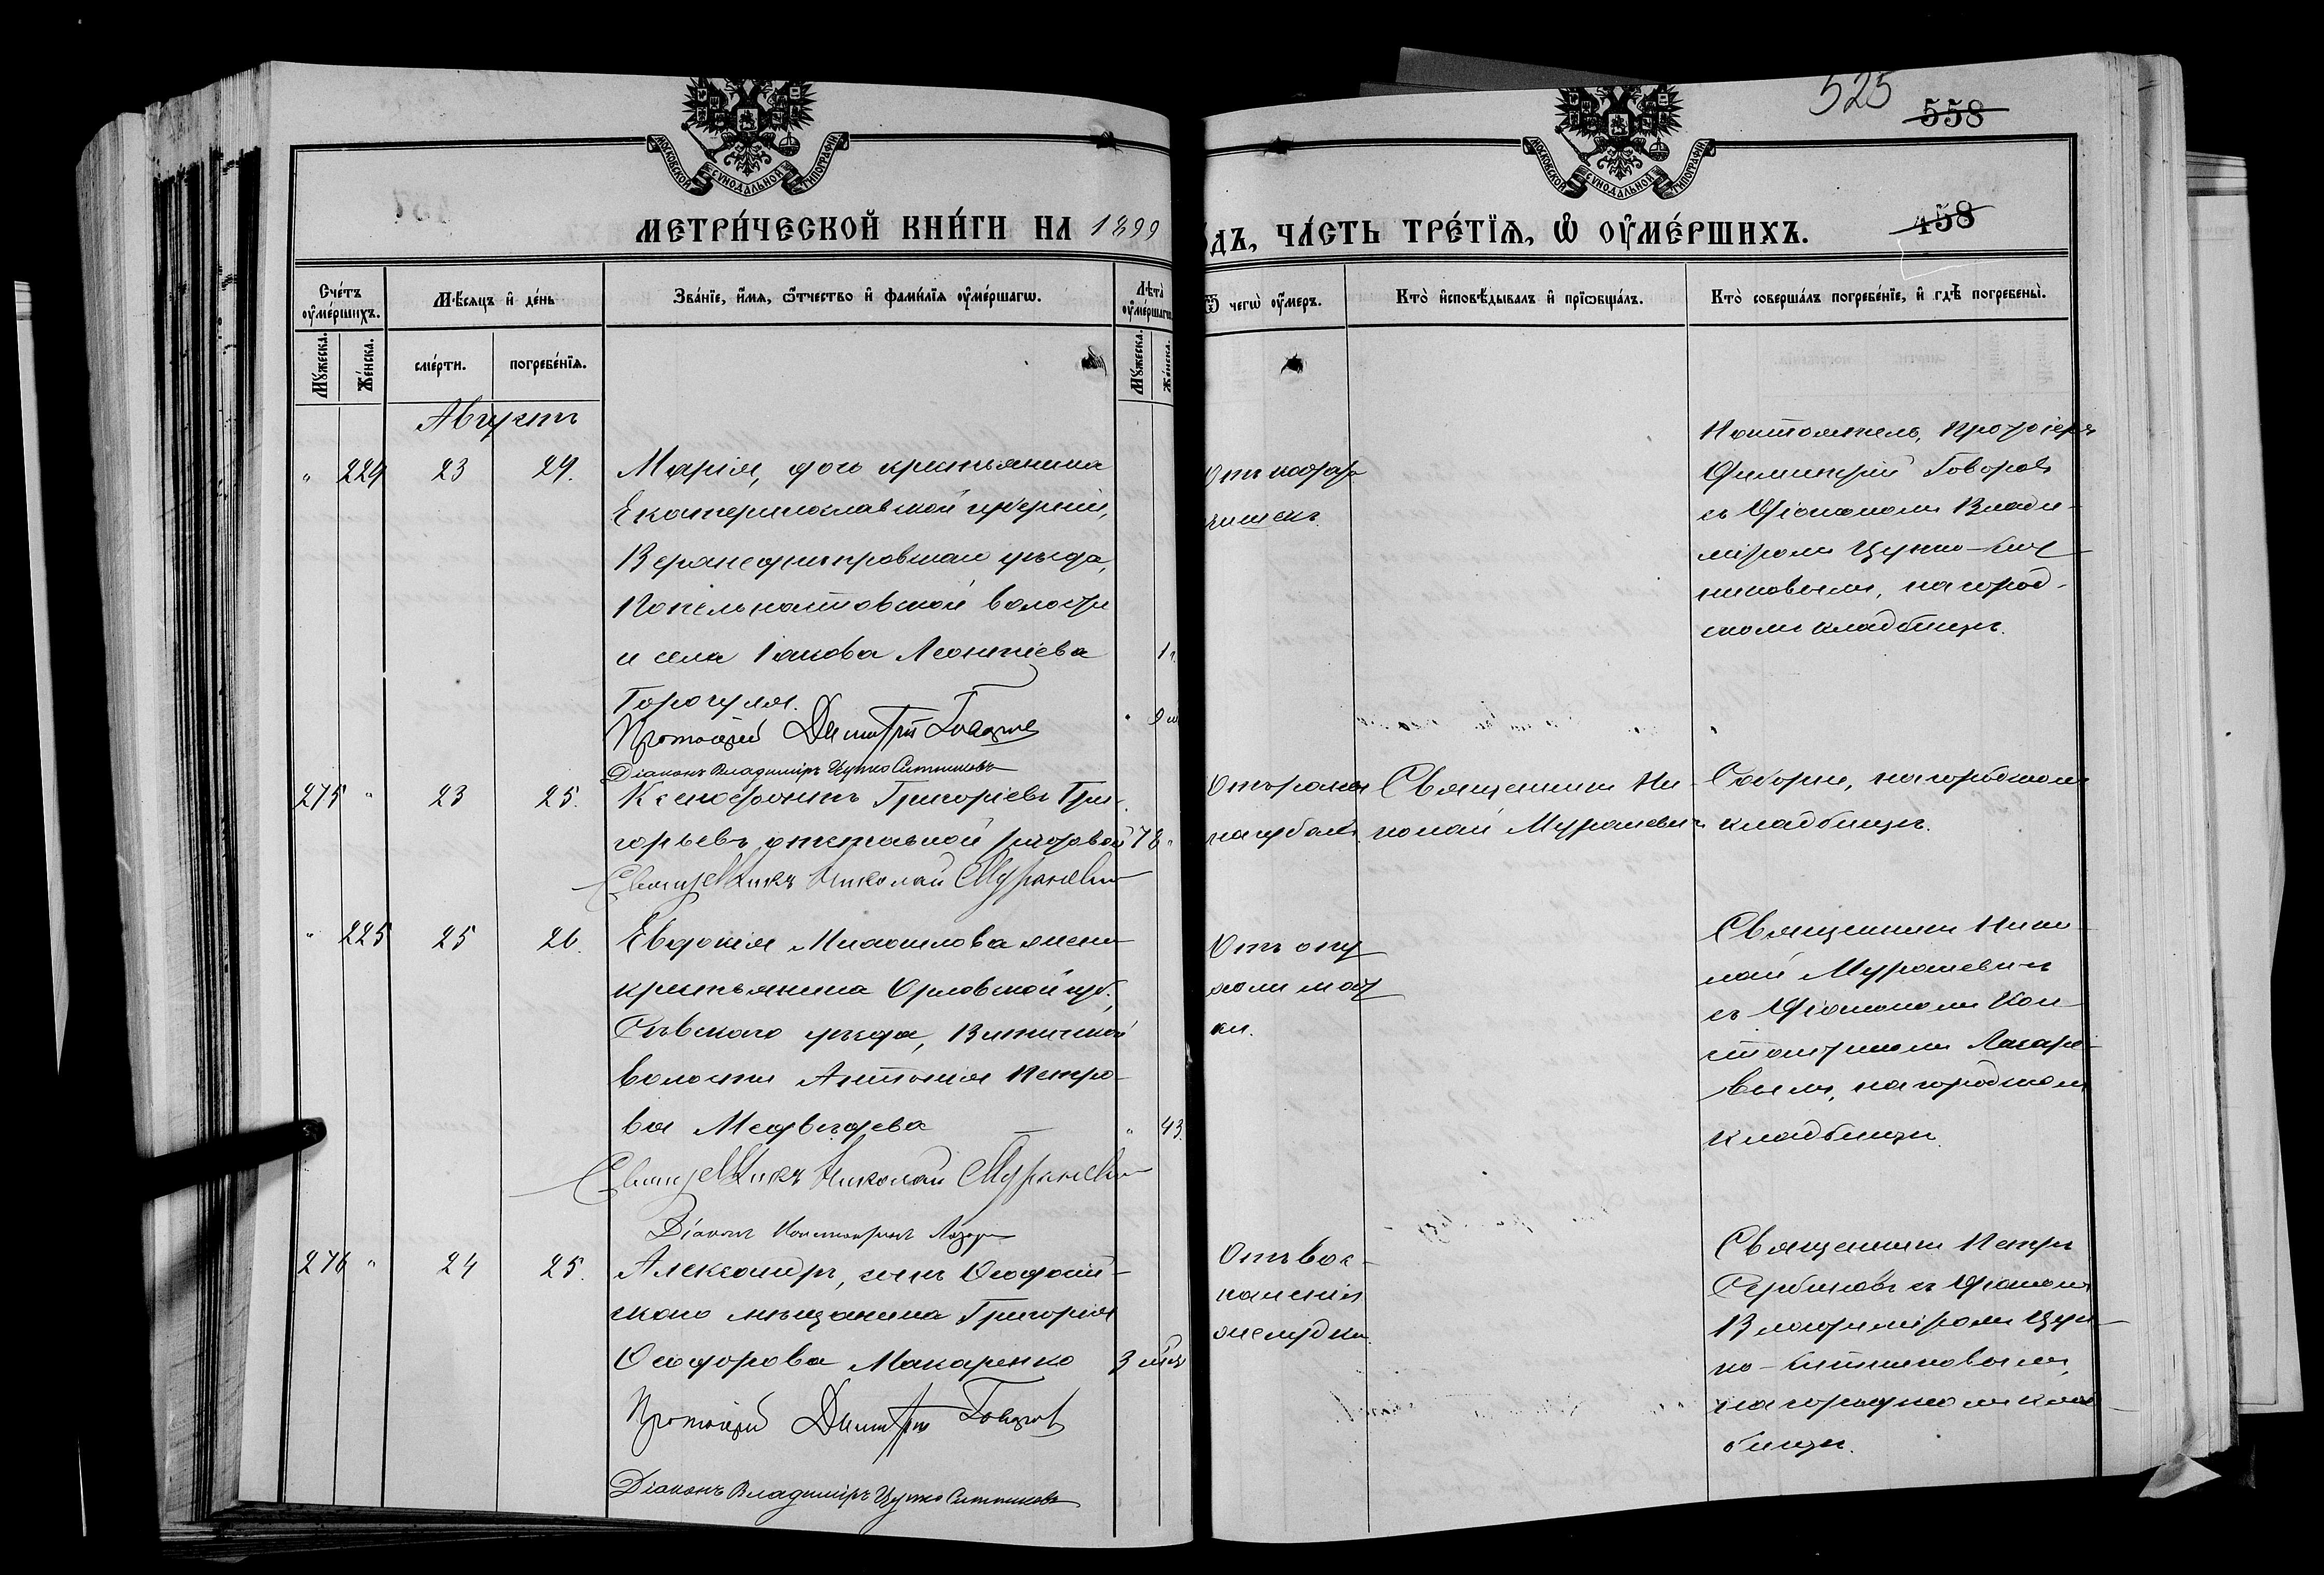 525
558
458
МОСКОВСКОЙ СѴНОДАЛЬНОЙ ТИПОГРАФІИ
МОСКОВСКОЙ СѴНОДАЛЬНОЙ ТИПОГРАФІИ
МЕТРИ́ЧЕСКОЙ КНИ́ГИ НА 1899
ОДЪ, ЧА́СТЬ ТРЕ́ТЇѦ, Ѡ ОУМЕ́РШИХЪ.
Сче́тъ оуме́ршихъ.
Мꙋжеска.
Же́нска.
Мѣсѧцъ и де́нь
сме́рти.
погребе́нїѧ.
Зва́нїе, и́мѧ, ѻ́тчество и фами́лїѧ оуме́ршагѡ.
Лѣта̀ оуме́ршагѡ
Мꙋжеска.
Же́нска.
Ѿ чегѡ̀ оу́меръ.
Кто̀ и́сповѣ́дывалъ и прїѡбща́лъ.
Кто̀ соверша́лъ погребе́нїе, и гдѣ̀ погребены̀.
Августъ
" 229 23 24.
Марія, дочь крестьянина
Екатеринославской губерніи,
Верхнеднѣпровскаго уѣзда,
волости
и села Іакова Леонтіева
1 г.
" 9 м.
Протоіерей Димитрій Говоровъ
Діаконъ Владиміръ Цупко Ситниковъ
Настоятель, протоіерей
Димитрій Говоровъ
съ Діакономъ Влади-
міромъ Цупко-Сит
никовымъ, на город-
скомъ кладбищѣ.
275 " 23 25.
Ксенофонтъ Григорьевъ Гри-
горьевъ отставной рядовой 78 "
Священникъ Николай Мураневичъ
Отъ рака
на губахъ.
Священникъ Ни-
колай Мураневичъ
Соборне, на городскомъ
кладбищѣ.
" 225 25 26.
Евдокія Михаилова жена
крестьянина Орловской губ.,
Сѣвскаго уѣзда,
волости Антонія Петро-
ва Медвѣдева " 43.
Священникъ Николай Мураневичъ
Діаконъ Константинъ Лазаре
Отъ опу
холи мат
ки.
Священникъ Нико-
лай Мураневичъ
съ Діакономъ Кон-
стантиномъ Лазаре-
вымъ, на городскомъ
кладбищѣ.
276 " 24 25.
Александръ, сынъ Ѳеодосій-
скаго мѣщанина Григорія
Ѳеодорова Макаренко 3 мѣся
Протоіерей Димитрій Говоровъ
Діаконъ Владиміръ Цупко Ситниковъ
Отъ вос-
паленія
желудка.
Священникъ Петръ
Сербиновъ съ Діакономъ
Владиміромъ Цуп-
ко-Ситниковымъ,
на городскомъ клад-
бищѣ.